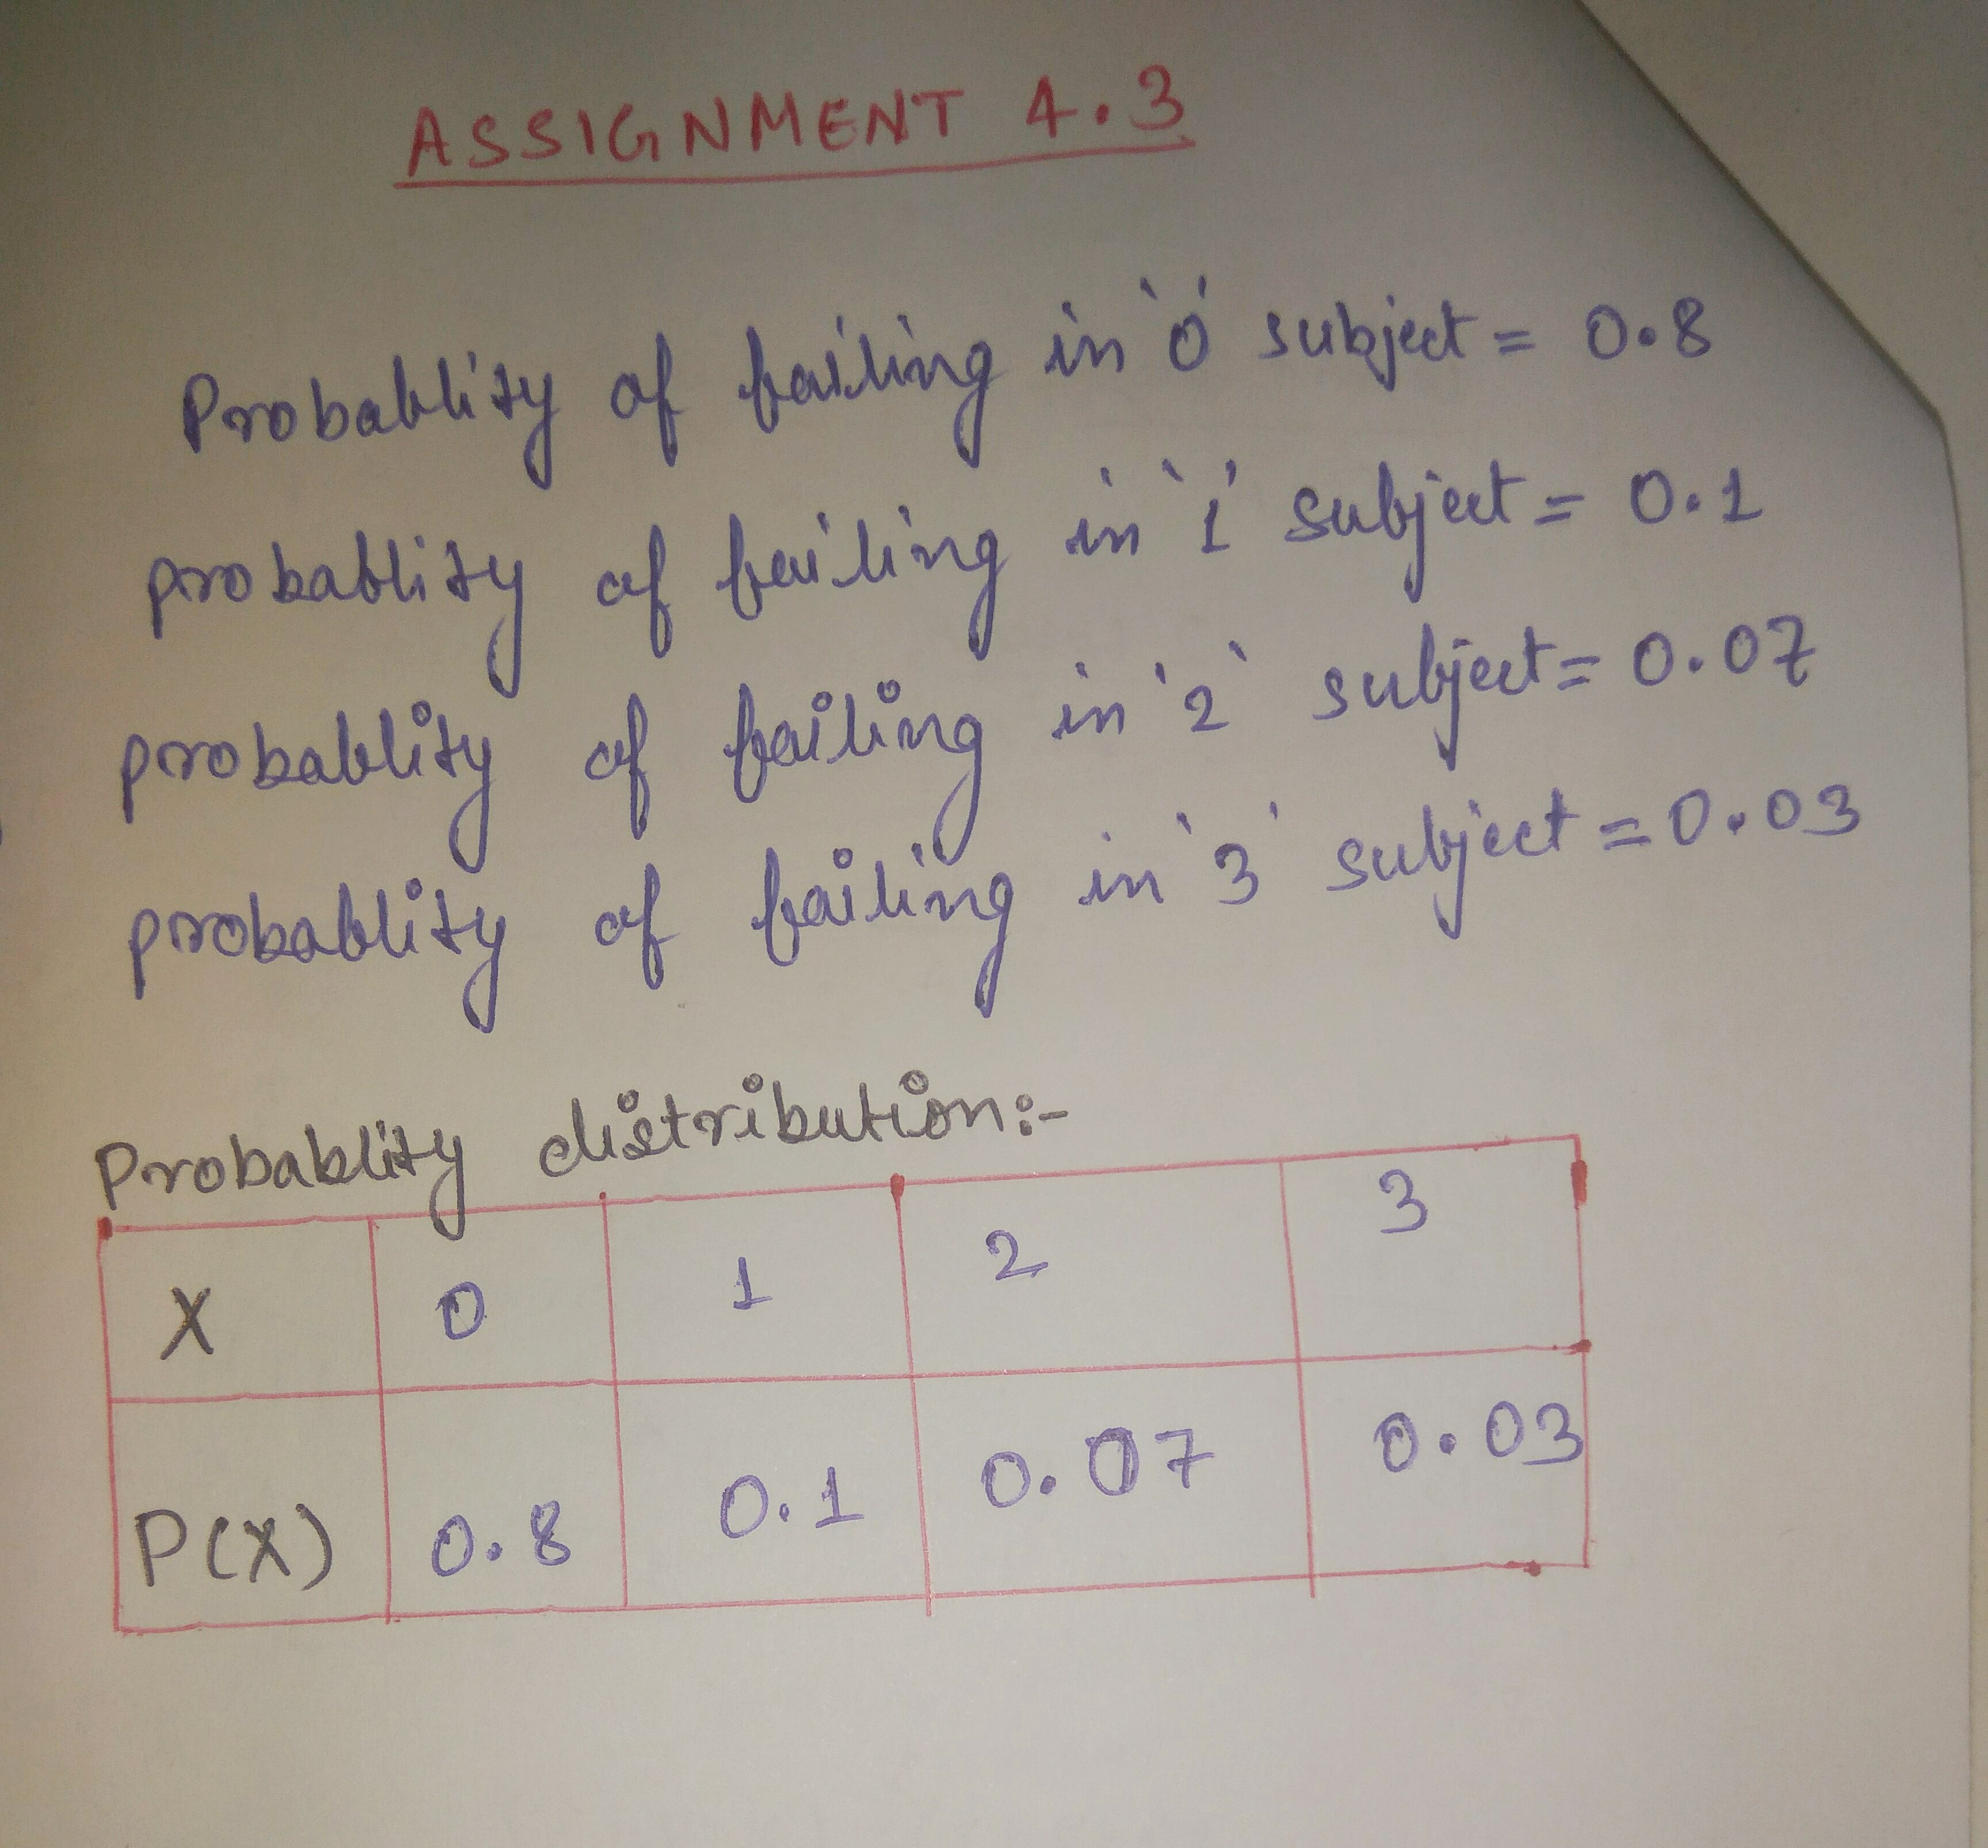 ASSIGNMENT 4.3
Probablity of failing in '0' subject = 0.8
probablity of failing in '1' subject = 0.1
probablity of failing in '2' subject = 0.07
probablity of failing in '3' subject = 0.03
Probablity distribution:-
X 0 1 2 3
P(X) 0.8 0.1 0.07 0.03